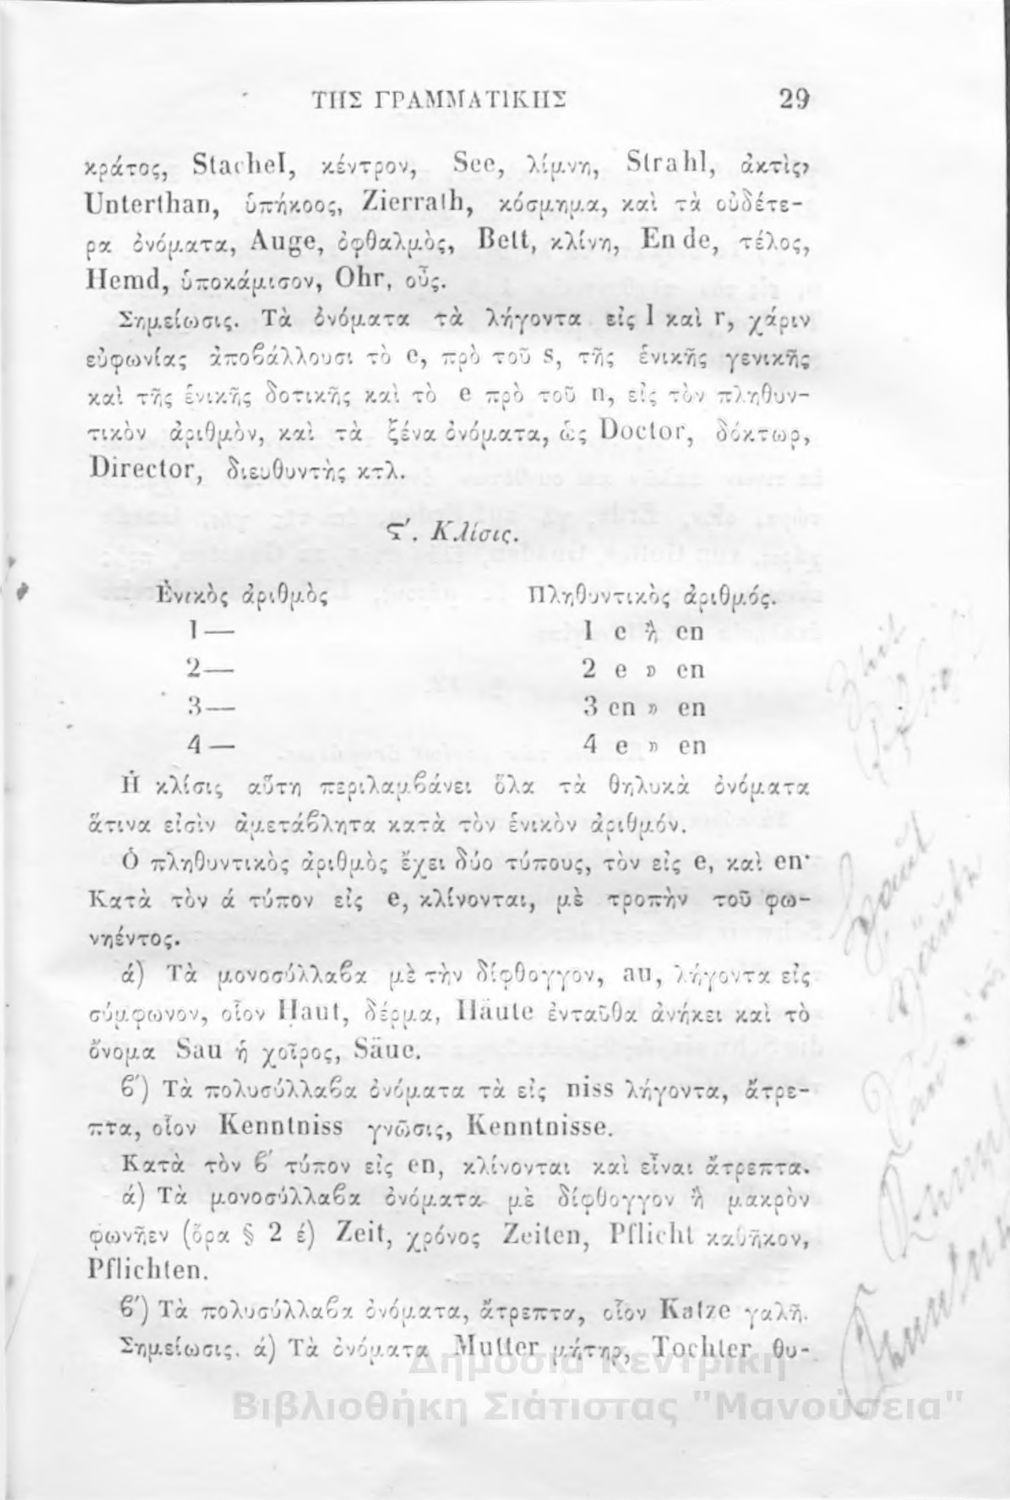 ΤΗΣ ΓΡΑΜΜΑΤΙΚΗΣ 29
κράτος, Stachel, κέντρον, See, λίμνη, Strahl, ἀκτὶς,
Unterthan, ὑπήκοος, Zierrath, κόσμημα, καὶ τὰ οὐδέτε-
ρα ὀνόματα, Auge, ὀφθαλμὸς, Bett, κλίνη, Ende, τέλος,
Hemd, ὑποκάμισον, Ohr, οὖς.
Σημείωσις. Τὰ ὀνόματα τὰ λήγοντα εἰς l καὶ r, χάριν
εὐφωνίας ἀποβάλλουσι τὸ e, πρὸ τοῦ s, τῆς ἑνικῆς γενικῆς
καὶ τῆς ἑνικῆς δοτικῆς καὶ τὸ e πρὸ τοῦ n, εἰς τὸν πληθυν-
τικὸν ἀριθμὸν, καὶ τὰ ξένα ὀνόματα, ὡς Doctor, δόκτωρ,
Director, διευθυντὴς κτλ.
ς′. Κλίσις.
Ἑνικὸς ἀριθμὸς Πληθυντικὸς ἀριθμός.
1— 1 e ἢ en
2— 2 e » en
3— 3 en » en
4— 4 e » en
Ἡ κλίσις αὕτη περιλαμβάνει ὅλα τὰ θηλυκὰ ὀνόματα
ἅτινα εἰσὶν ἀμετάβλητα κατὰ τὸν ἑνικὸν ἀριθμόν.
Ὁ πληθυντικὸς ἀριθμὸς ἔχει δύο τύπους, τὸν εἰς e, καὶ en·
Κατὰ τὸν ά τύπον εἰς e, κλίνονται, μὲ τροπὴν τοῦ φω-
νηέντος.
ά) Τὰ μονοσύλλαβα μὲ τὴν δίφθογγον, au, λήγοντα εἰς
σύμφωνον, οἷον Haut, δέρμα, Häute ἐνταῦθα ἀνήκει καὶ τὸ
ὄνομα Sau ἡ χοῖρος, Säue.
β′) Τὰ πολυσύλλαβα ὀνόματα τὰ εἰς niss λήγοντα, ἄτρε-
πτα, οἷον Kenntniss γνῶσις, Kenntnisse.
Κατὰ τὸν β′ τύπον εἰς en, κλίνονται καὶ εἶναι ἄτρεπτα.
ά) Τὰ μονοσύλλαβα ὀνόματα μὲ δίφθογγον ἢ μακρὸν
φωνῆεν (ὅρα § 2 έ) Zeit, χρόνος Zeiten, Pflicht καθῆκον,
Pflichten.
β′) Τὰ πολυσύλλαβα ὀνόματα, ἄτρεπτα, οἷον Katze γαλῆ.
Σημείωσις. ά) Τὰ ὀνόματα Mutter μήτηρ, Tochter θυ-
Δημόσια Κεντρική
Βιβλιοθήκη Σιάτιστας "Μανούσεια"